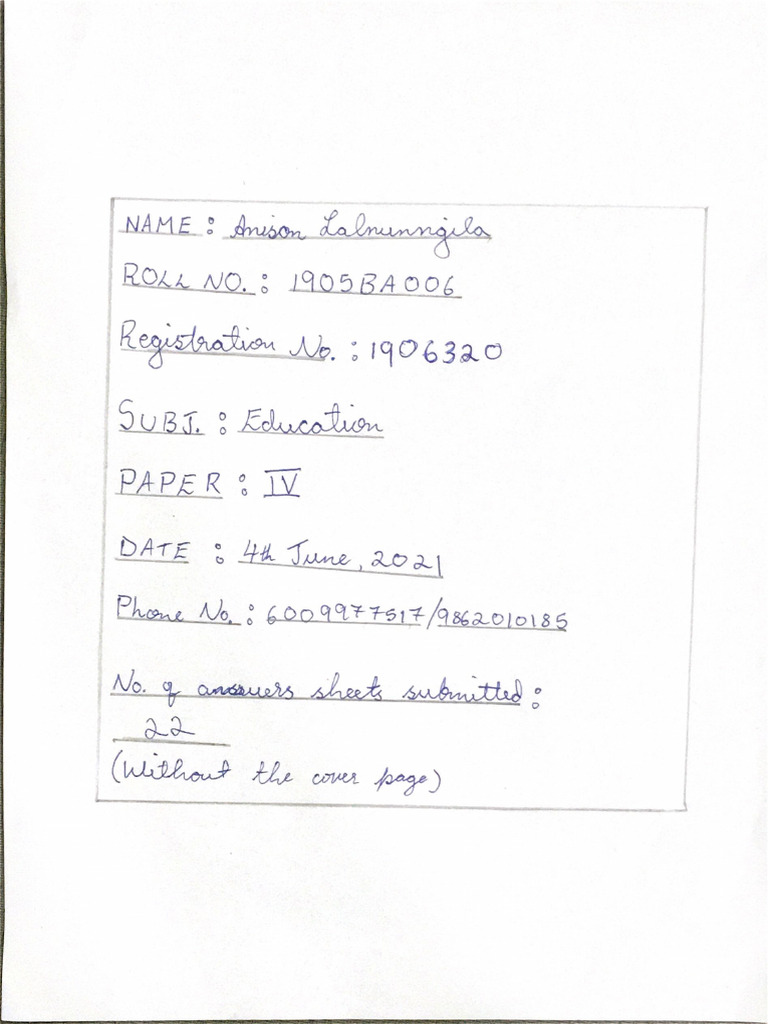 NAME : Anison Lalnunngila
ROLL NO. : 1905BA006
Registration No. : 1906320
SUBJ. : Education
PAPER : IV
DATE : 4th June, 2021
Phone No. : 6009977517/9862010185
No. of answers sheets submitted :
22
(Without the cover page)